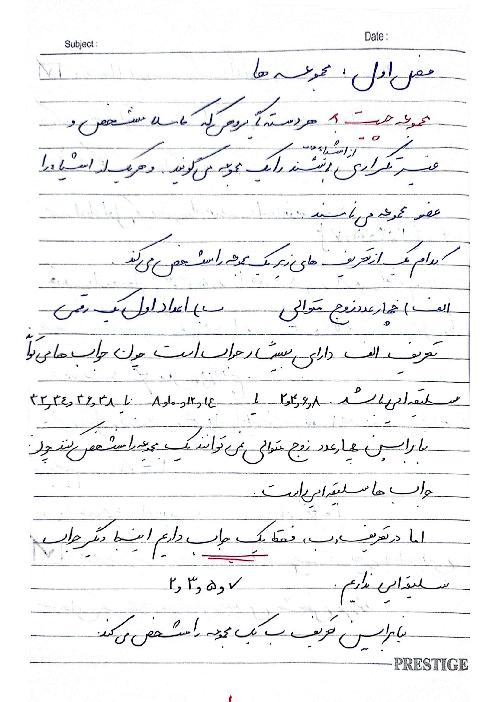 Subject:
Date:
فصل اول : مجموعه ها
مجموعه چیست؟ هر دسته یا گروهی که کاملا مشخص و
غیر تکراری از اشیاء باشند را یک مجموعه می گویند. و هر یک از اشیاء را
عضو مجموعه می نامند
کدام یک از تعریف های زیر یک مجموعه را مشخص می کند.
الف) چهار عدد زوج متوالی ب) اعداد اول یک رقمی
تعریف الف دارای بیشمار جواب است چون جواب ها می تواند
سلیقه ایی باشد. ۸و۶و۴و۲ یا ۱۴و۱۲و۱۰و۸ یا ۳۸و۳۶و۳۴و۳۲
بنابراین چهار عدد زوج متوالی نمی توانند یک مجموعه را مشخص کنند چون
جواب ها سلیقه ایی است.
اما در تعریف ب، فقط یک جواب داریم اینجا دیگر جواب
سلیقه ایی نداریم. ۷و۵و۳و۲
بنابراین تعریف ب یک مجموعه را مشخص می کند.
PRESTIGE
۱